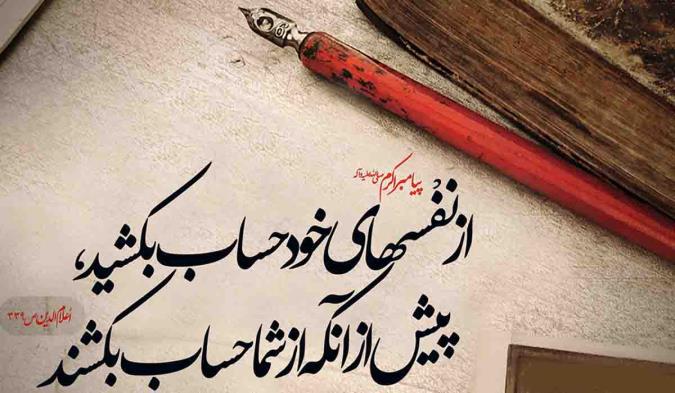 پیامبر اکرم صلی الله علیه و آله
از نفْسهای خود حساب بکشید،
پیش از آنکه از شما حساب بکشند
اعلام الدین ص ۳۳۹